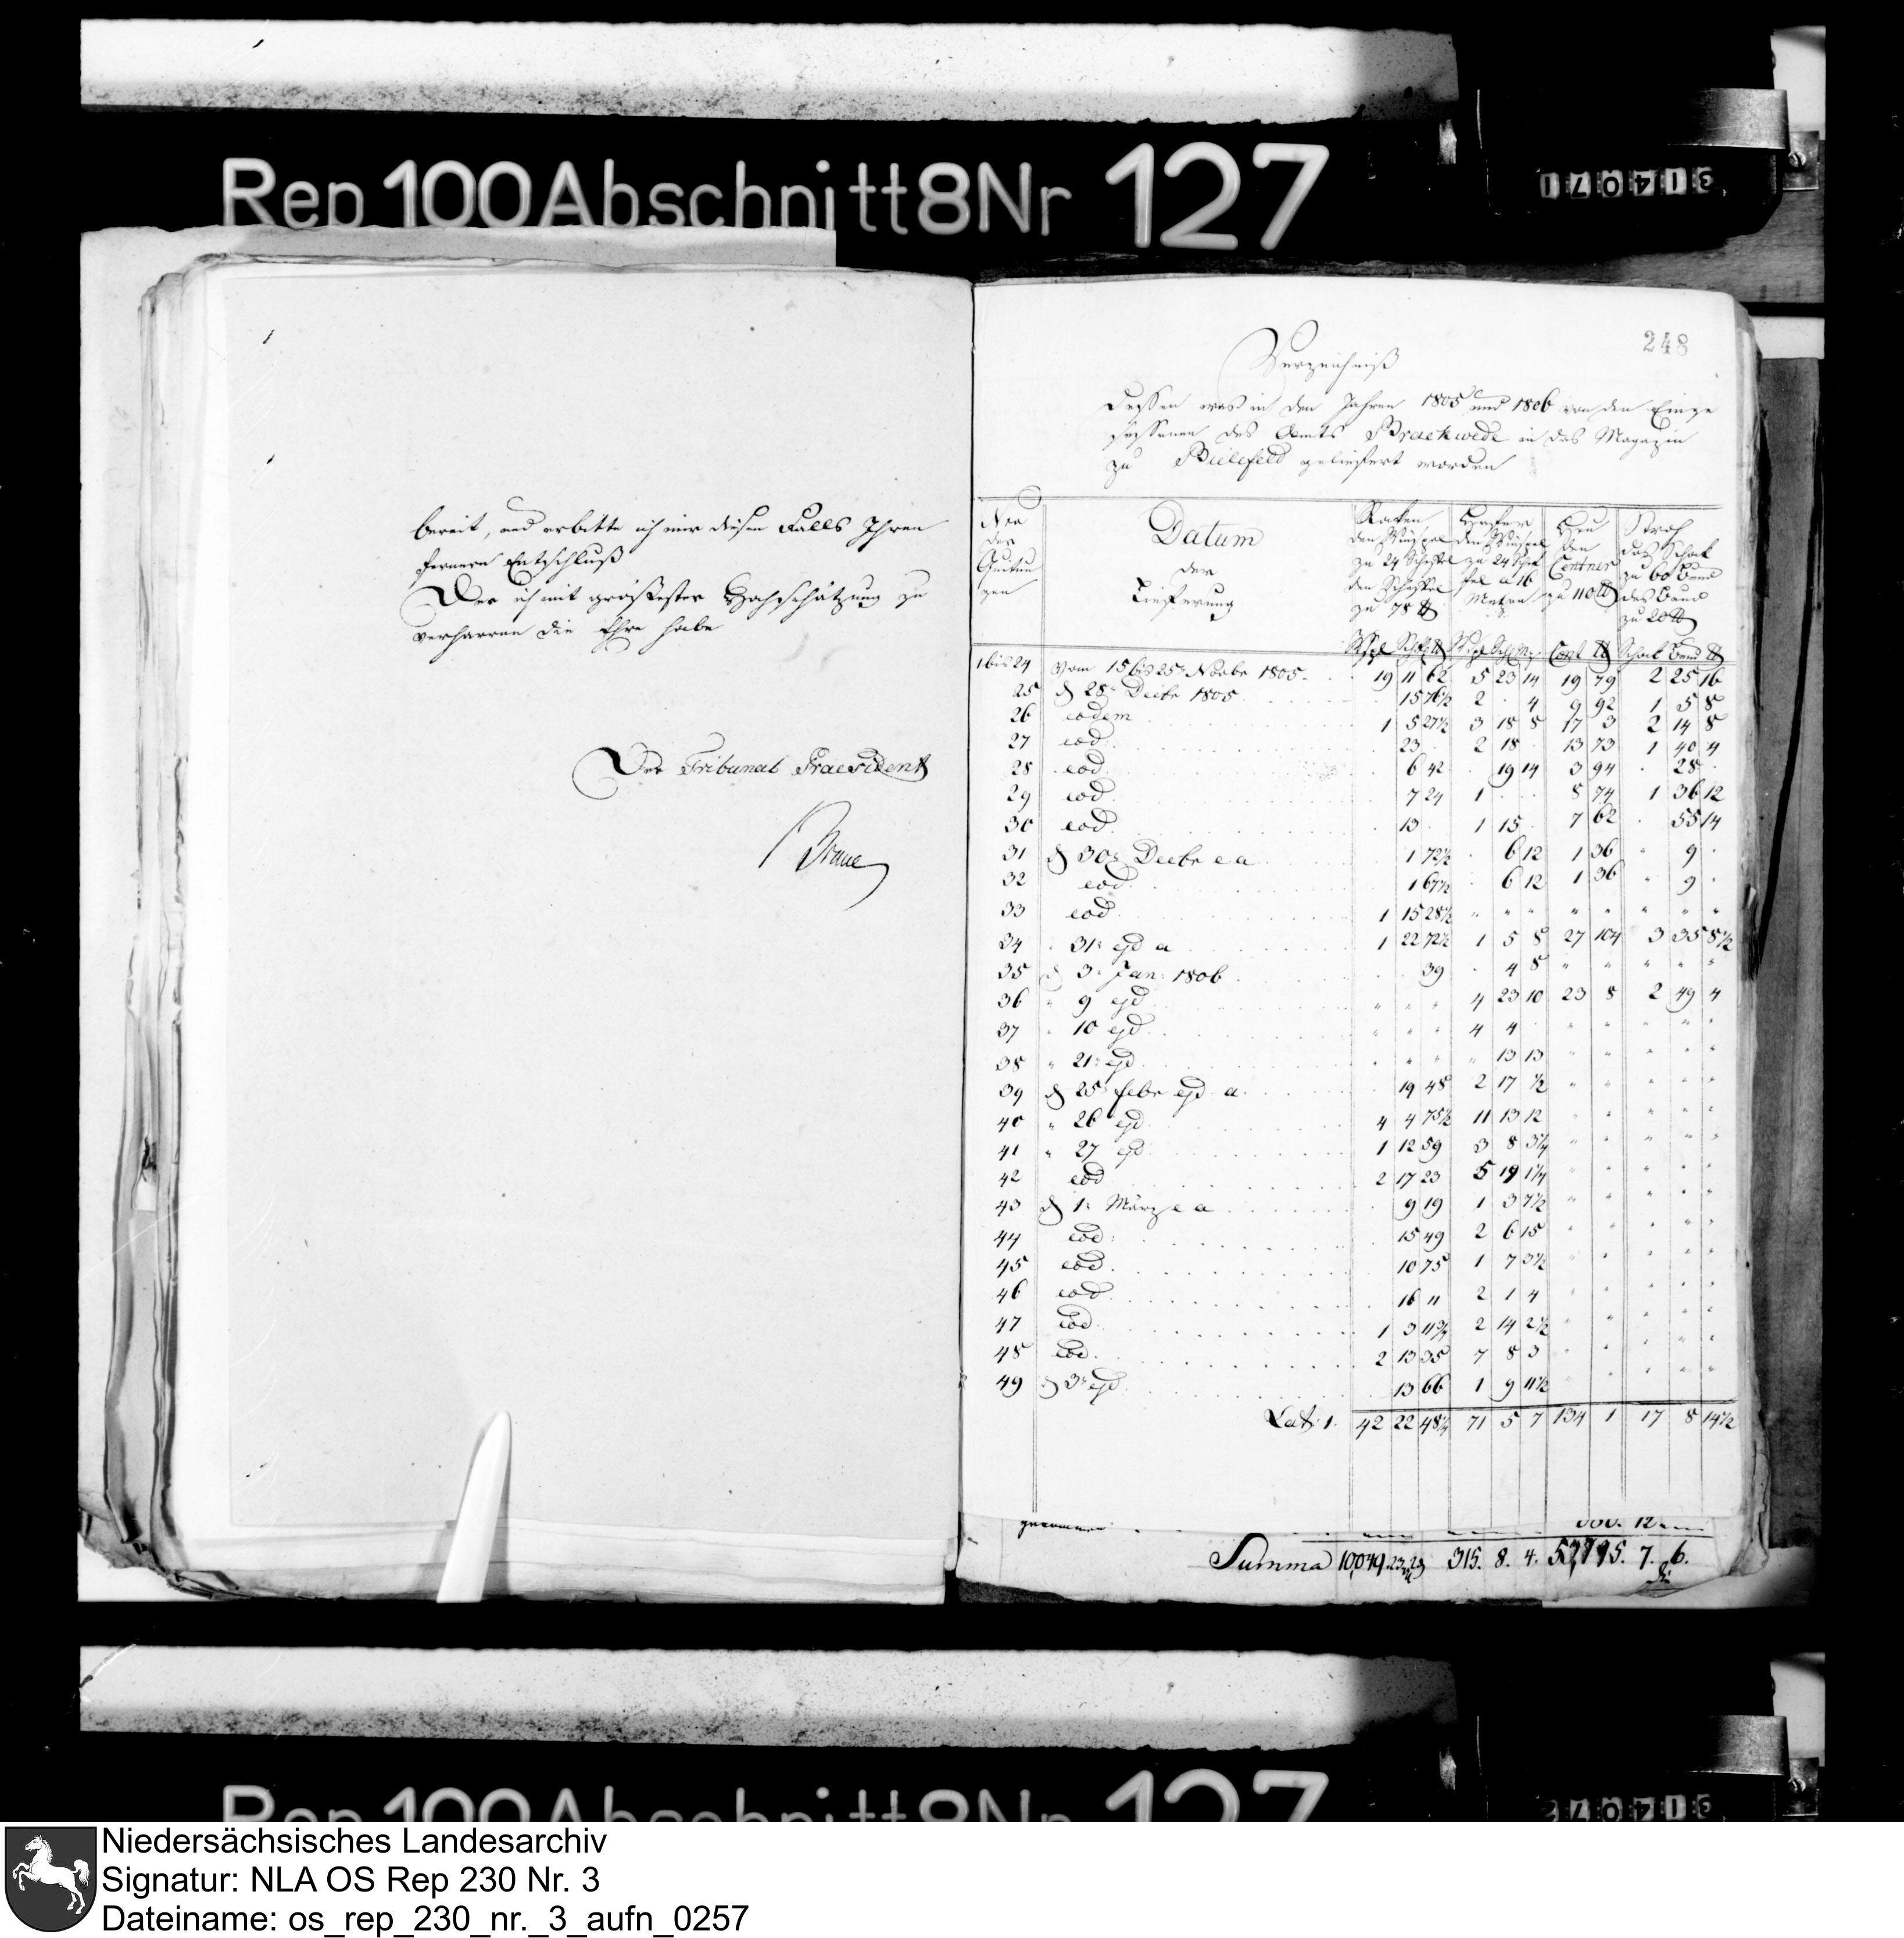 Rep 100 Abschnitt 8 Nr 127
bereit, und erbitte ich mir diesen Falls Ihren
fernern Entschluß
Der ich mit größester Hochschätzung zu
verharren die Ehre habe
Der Tribunal Praesident
248
Verzeichniß
dessen was in den Jahren 1805 und 1806 von den Einge
sessenen des Amts Brackwede in das Magazin
zu Bielefeld geliefert worden
Nro der Quitun gen | Datum der Lieferung | Rocken den Winspel zu 24 Scheffel den Scheffel zu 78 ℔ | Hafer den Winspel zu 24 Schef fel a 16 Metzen | Heu den Centner zu 110 ℔ | Stroh das Schock zu 60 Bund das Bund zu 20 ℔
Wspl Schfl ℔ Wspl Schfl Mz Cent ℔ Schock Bund ℔
1 bis 24 vom 15 bis 25: Novbr 1805. 19 11 62 5 23 14 19 79 2 25 16
25 d 28: Decbr 1805 15 76½ 2 . 4 9 92 1 5 8
26 eodem 1 5 27½ 3 18 8 17 3 2 14 8
27 eod. 23 . 2 18 . 13 73 1 40 4
28 eod. 6 42 . 19 14 3 94 . 28 .
29 eod. 7 24 1 . . 8 74 1 36 12
30 eod. 13 . 1 15 . 7 62 . 55 14
31 d 30: Decbr e a 1 72½ . 6 12 1 36 " 9 .
32 eod. 1 67½ . 6 12 1 36 " 9 .
33 eod. 1 15 28½ " " " " " " " "
34 . 31: ejd a 1 22 72½ 1 5 8 27 104 3 35 8½
35 d 3: Jan: 1806 . . 39 . 4 8 " " " " "
36 " 9 ejd. " " " 4 23 10 23 8 2 49 4
37 " 10 ejd. " " " 4 4 . " " " " "
38 " 21: ejd. " " " " 13 13 " " " " "
39 d 25: Febr ejd. a. 19 48 2 17 ½ " " " " "
40 " 26 ejd. 4 4 75½ 11 13 12 " " " " "
41 " 27 ejd. 1 12 59 3 8 3¼ " " " " "
42 eod. 2 17 23 5 19 1¼ " " " " "
43 d 1: März e a 9 19 1 3 7½ " " " " "
44 eod: 15 49 2 6 15 " " " " "
45 eod. 10 75 1 7 3½ " " " " "
46 eod. 16 11 2 1 4 " " " " "
47 eod. 1 3 11¾ 2 14 2½ " " " " "
48 eod. 2 13 35 7 8 3 " " " " "
49 d 3: ejd. 13 66 1 9 11½ " " " " "
Lat: 1. 42 22 48¼ 71 5 7 134 1 17 8 14½
Summa 315. 8. 4. 7. 6.
Rep 100 Abschnitt 8 Nr 127
Niedersächsisches Landesarchiv
Signatur: NLA OS Rep 230 Nr. 3
Dateiname: os_rep_230_nr._3_aufn_0257